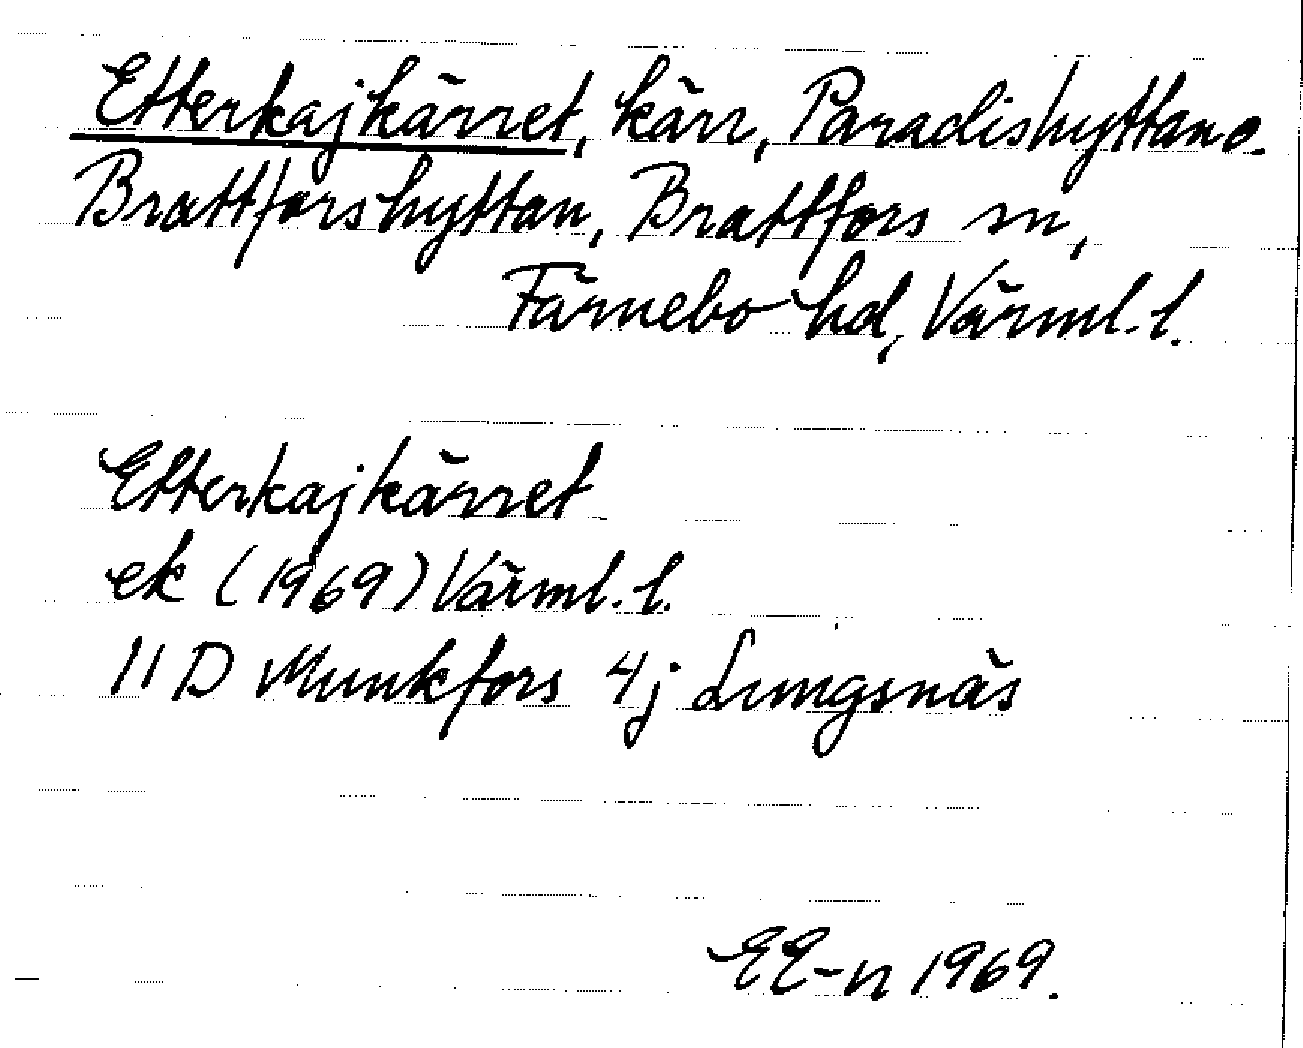 Etterkajkärret, kärr, Paradishyttan o.
Brattforshyttan, Brattfors sn,
Färnebo hd, Värml. l.
Etterkajkärret
ek (1969) Värml. l.
11 D Munkfors 4j Lungsnäs
EE-n 1969.